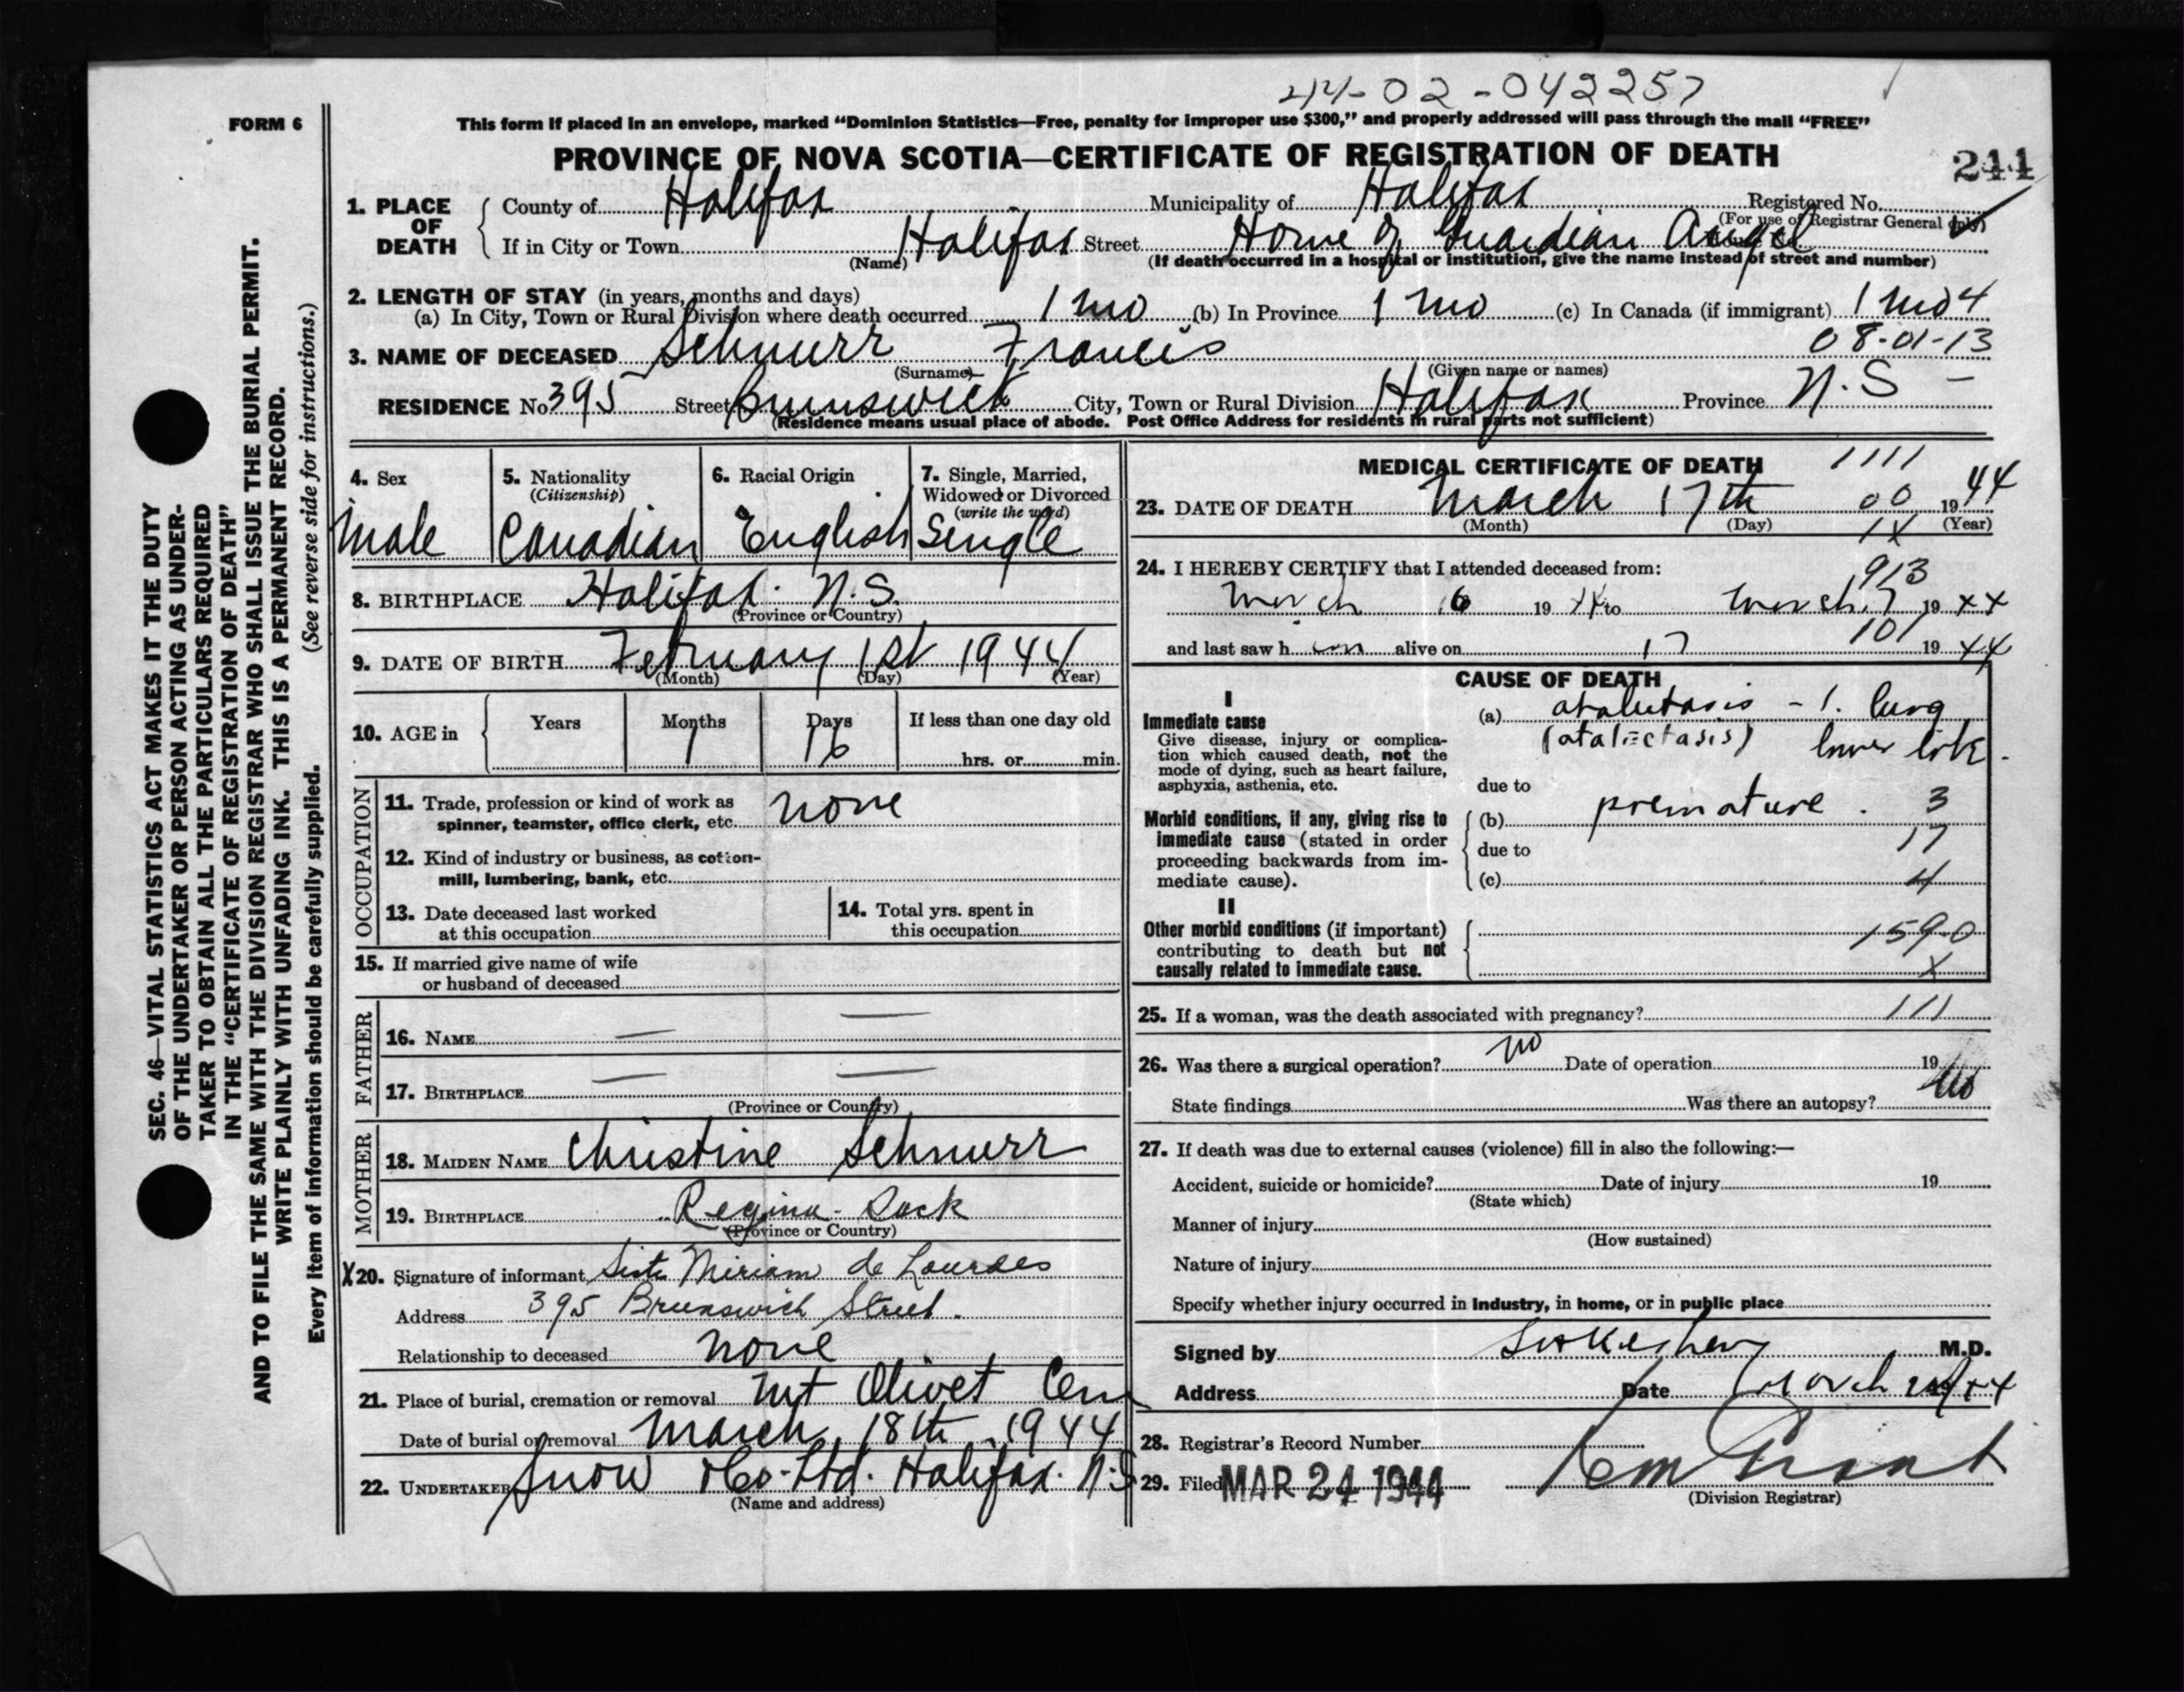 44-02-042257
FORM 6
This form if placed in an envelope, marked “Dominion Statistics—Free, penalty for improper use $300,” and properly addressed will pass through the mail “FREE”
PROVINCE OF NOVA SCOTIA—CERTIFICATE OF REGISTRATION OF DEATH
244
1. PLACE OF DEATH
County of Halifax Municipality of Halifax Registered No.
(For use of Registrar General only)
If in City or Town Halifax Street Home of Guardian Angel
(Name) (If death occurred in a hospital or institution, give the name instead of street and number)
2. LENGTH OF STAY (in years, months and days)
(a) In City, Town or Rural Division where death occurred 1 mo (b) In Province 1 mo (c) In Canada (if immigrant) 1 mo 4
08-01-13
3. NAME OF DECEASED Schnurr Francis
(Surname) (Given name or names)
RESIDENCE No 395 Street Brunswick City, Town or Rural Division Halifax Province N.S -
(Residence means usual place of abode. Post Office Address for residents in rural parts not sufficient)
4. Sex
Male
5. Nationality
(Citizenship)
Canadian
6. Racial Origin
English
7. Single, Married,
Widowed or Divorced
(write the word)
Single
8. BIRTHPLACE Halifax. N.S.
(Province or Country)
9. DATE OF BIRTH February 1st 1944
(Month) (Day) (Year)
10. AGE in
Years Months Days If less than one day old
1 16
hrs. or min.
OCCUPATION
11. Trade, profession or kind of work as
spinner, teamster, office clerk, etc. none
12. Kind of industry or business, as cotton-
mill, lumbering, bank, etc.
13. Date deceased last worked
at this occupation
14. Total yrs. spent in
this occupation
15. If married give name of wife
or husband of deceased
FATHER
16. NAME — —
17. BIRTHPLACE — —
(Province or Country)
MOTHER
18. MAIDEN NAME Christine Schnurr
19. BIRTHPLACE Regina - Sack
(Province or Country)
X20. Signature of informant Sister Miriam de Lourdes
Address 395 Brunswick Street.
Relationship to deceased none
21. Place of burial, cremation or removal Mt Olivet Cem
Date of burial or removal March 18th 1944
22. UNDERTAKER Snow & Co. Ltd. Halifax. N.S
(Name and address)
MEDICAL CERTIFICATE OF DEATH 1111
23. DATE OF DEATH March 17th 00 1944
(Month) (Day) 1X (Year)
24. I HEREBY CERTIFY that I attended deceased from:
913
March 16 19 44 to March 17 19 44
101
and last saw h im alive on 17 19 44
CAUSE OF DEATH
I
Immediate cause
Give disease, injury or complica-
tion which caused death, not the
mode of dying, such as heart failure,
asphyxia, asthenia, etc.
(a) atalectasis - l. lung
(atalectasis) lower lobe.
due to
Morbid conditions, if any, giving rise to
immediate cause (stated in order
proceeding backwards from im-
mediate cause).
(b) premature. 3
due to 17
(c) 4
II
Other morbid conditions (if important)
contributing to death but not
causally related to immediate cause.
159-0
X
25. If a woman, was the death associated with pregnancy? 111
26. Was there a surgical operation? no Date of operation 19
State findings Was there an autopsy? no
27. If death was due to external causes (violence) fill in also the following:—
Accident, suicide or homicide? Date of injury 19
(State which)
Manner of injury
(How sustained)
Nature of injury
Specify whether injury occurred in industry, in home, or in public place
Signed by M.D.
Address Date March
28. Registrar's Record Number
29. Filed MAR 24 1944
(Division Registrar)
SEC. 46—VITAL STATISTICS ACT MAKES IT THE DUTY
OF THE UNDERTAKER OR PERSON ACTING AS UNDER-
TAKER TO OBTAIN ALL THE PARTICULARS REQUIRED
IN THE “CERTIFICATE OF REGISTRATION OF DEATH”
AND TO FILE THE SAME WITH THE DIVISION REGISTRAR WHO SHALL ISSUE THE BURIAL PERMIT.
WRITE PLAINLY WITH UNFADING INK. THIS IS A PERMANENT RECORD.
Every item of information should be carefully supplied. (See reverse side for instructions.)